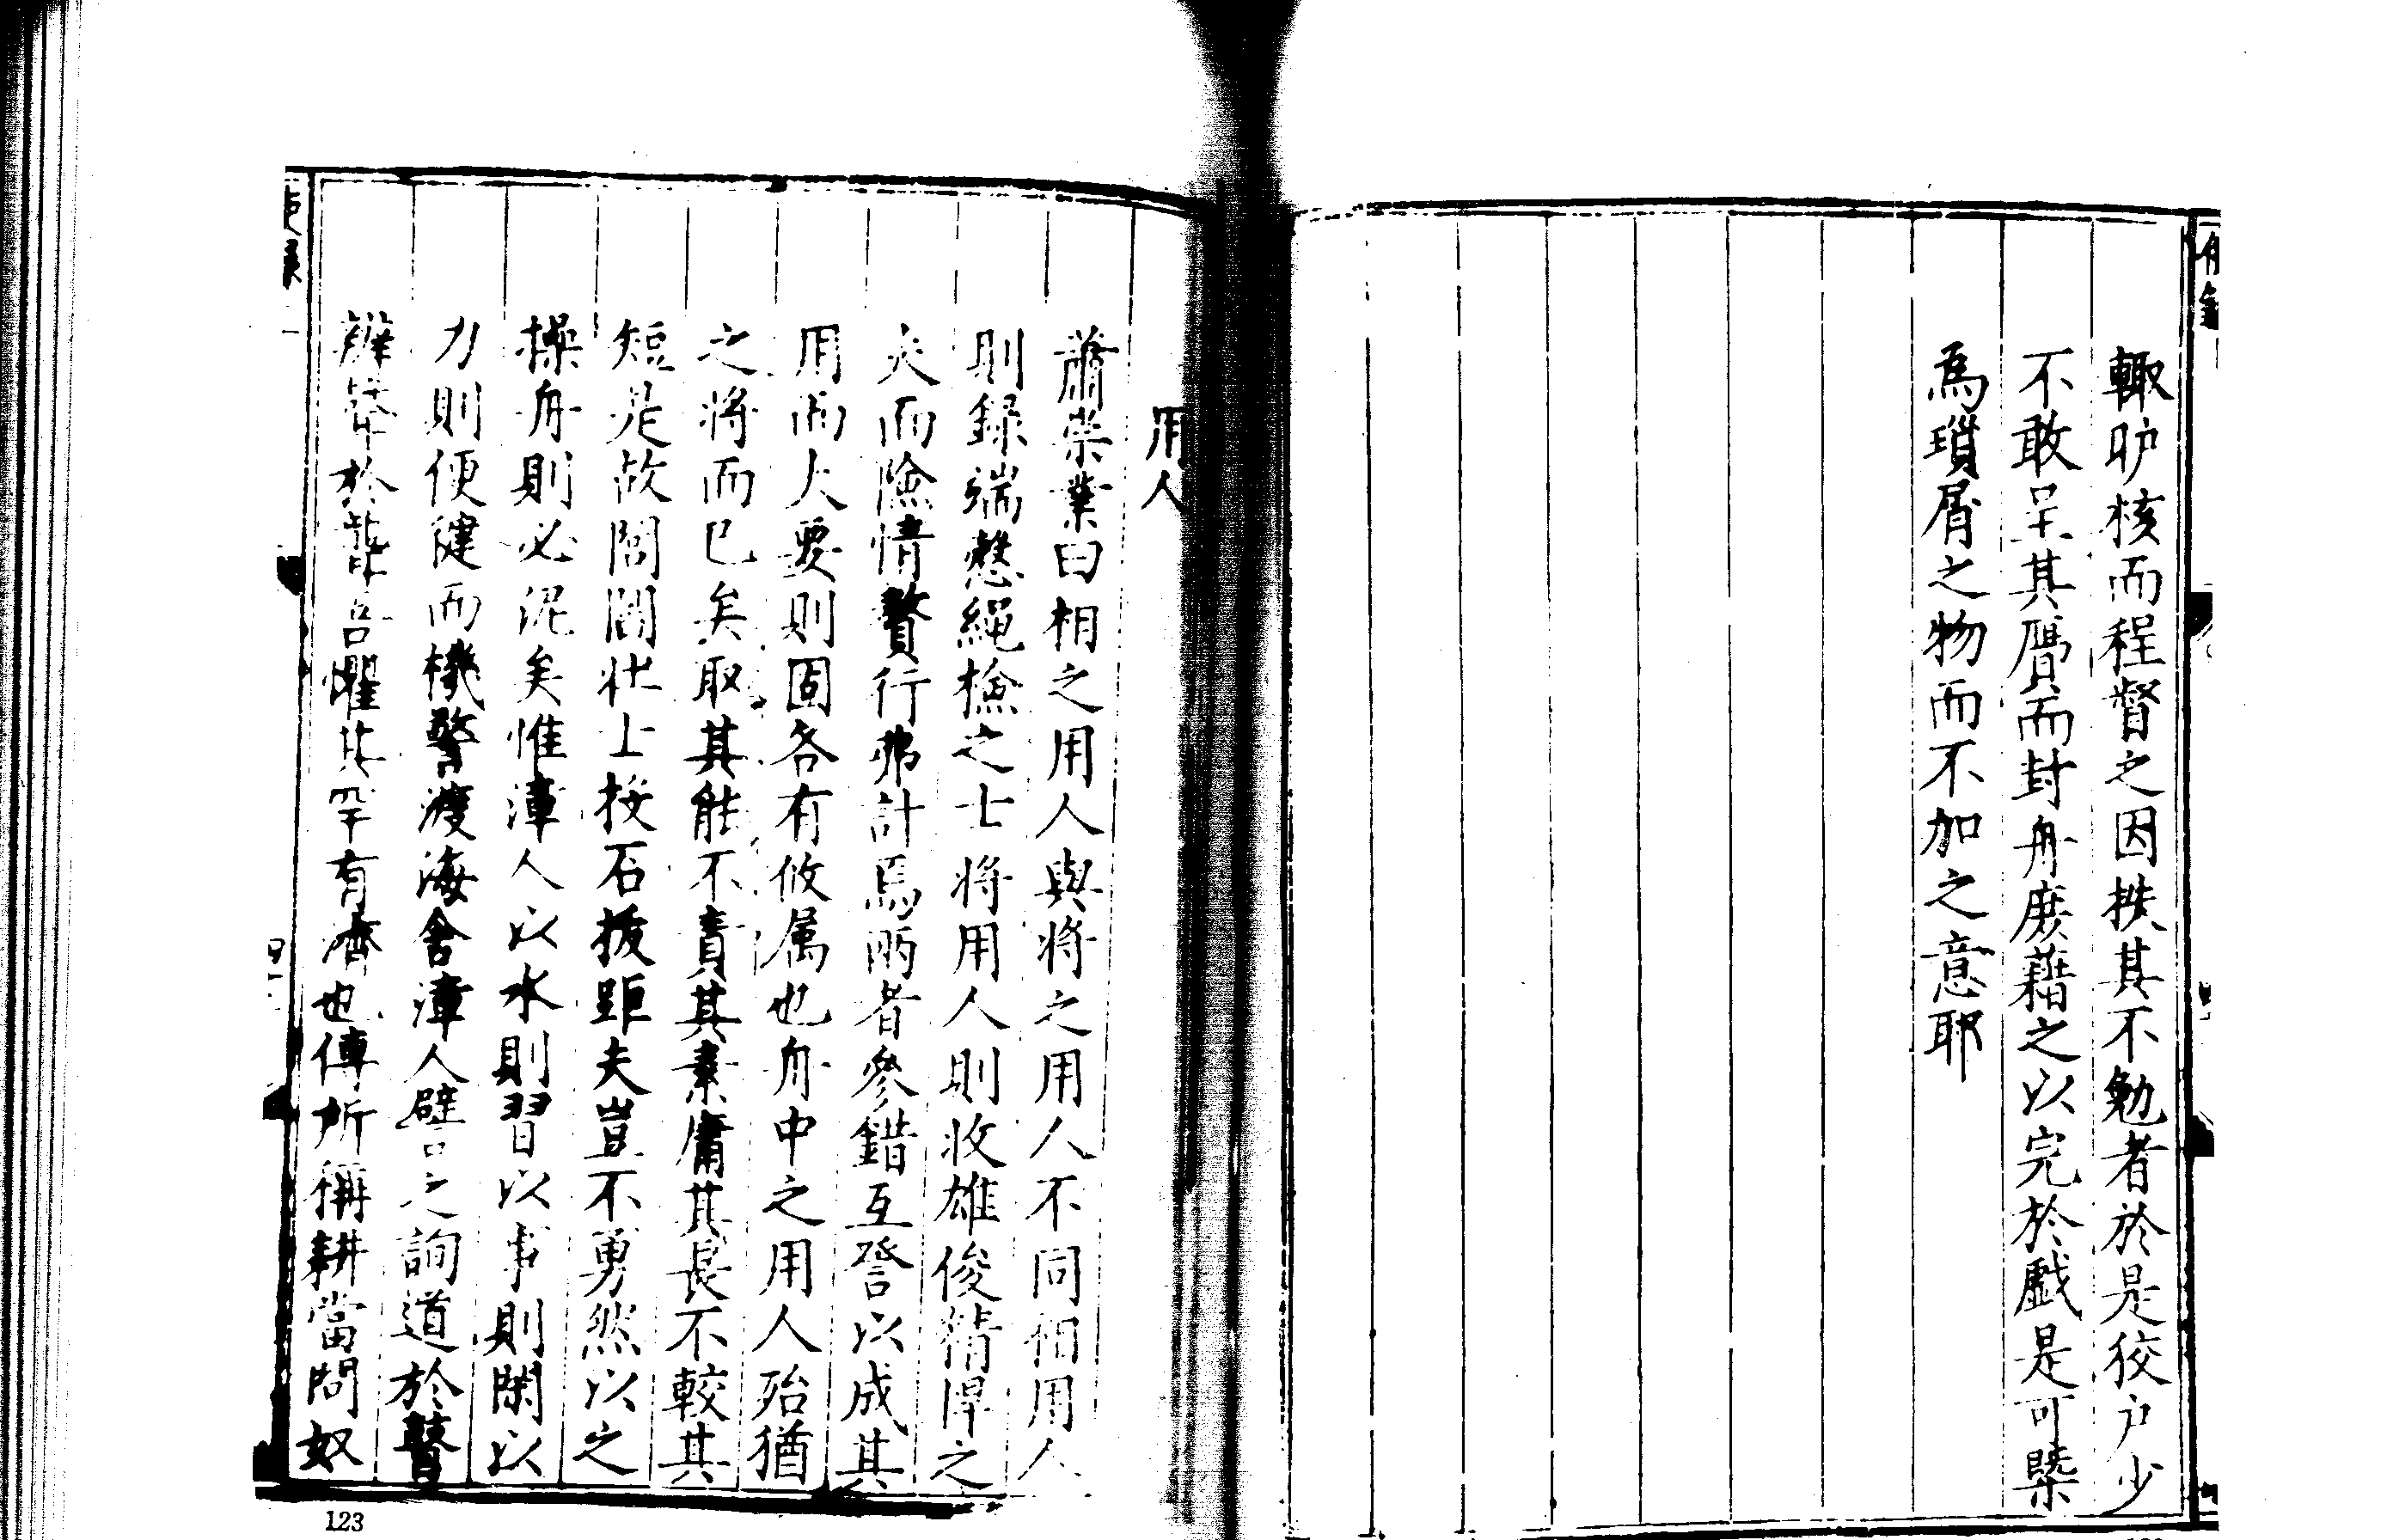 輙昈核而程督之因抶其不勉者於是狡户少
不敢呈其贋而封舟庶藉之以完於戲是可槩
爲瑣屑之物而不加之意耶
用人
蕭崇業曰相之用人與將之用人不同相用人
則録端慤繩檢之士將用人則收雄俊精悍之
夫而險情贅行弗計焉兩者參錯互發以成其
用而大要則固各有攸属也舟中之用人殆猶
之將而已矣取其能不責其素庸其長不較其
短是故閤閭壯士投石拔距夫豈不勇然以之
操舟則必泥矣惟漳人以水則習以事則閑以
力則便健而機警渡海舍漳人譬之詢道於瞽
辨 於聾吾懼其罕有濟也傳所稱耕當問奴
使録
123